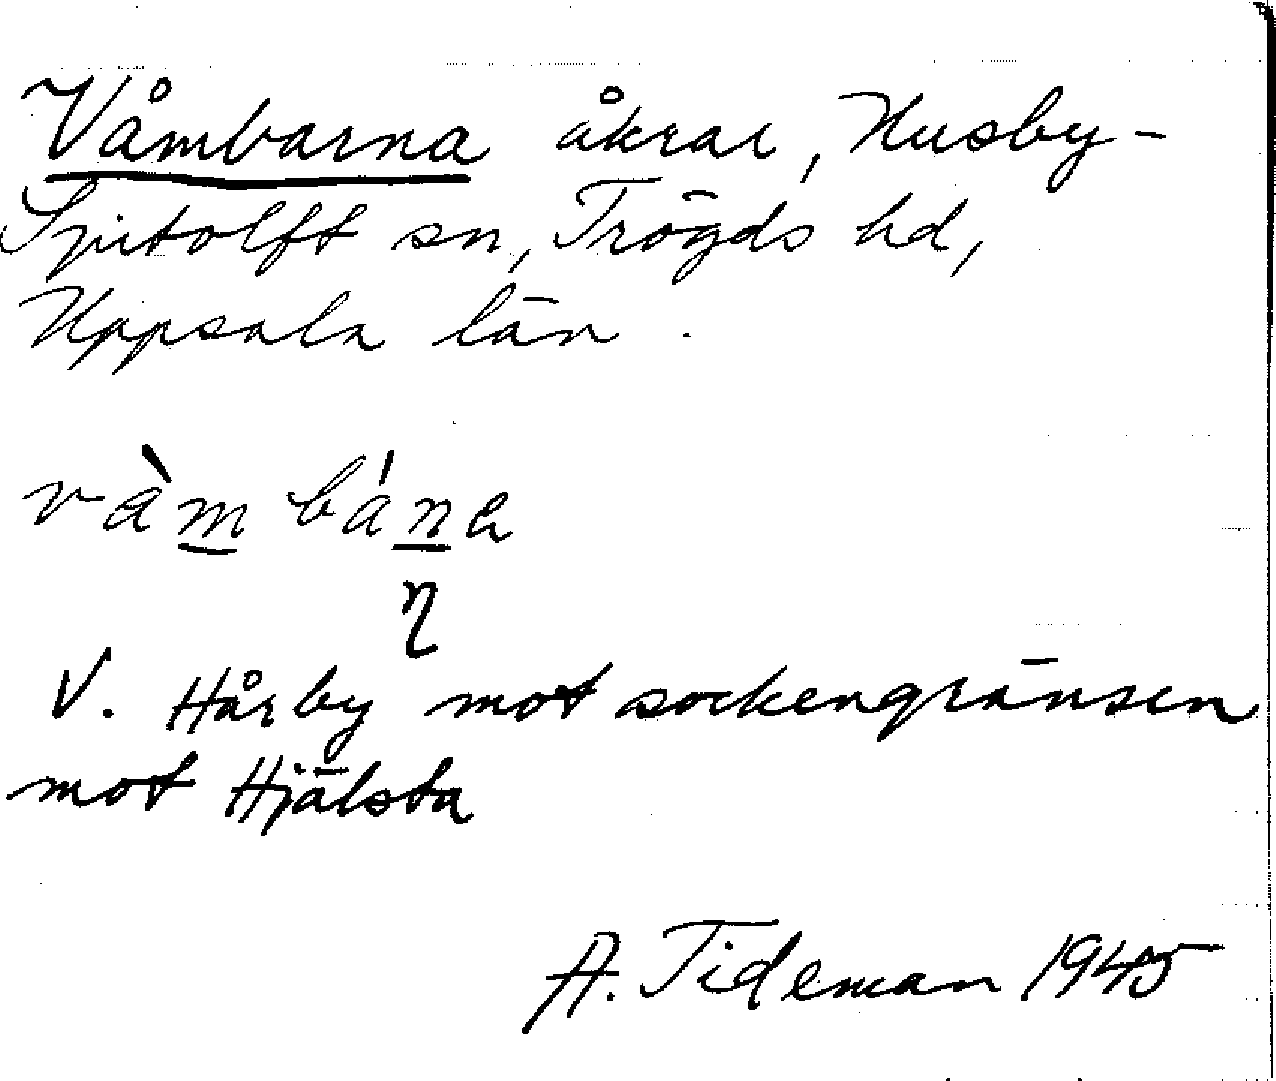 Våmbarna åkrar, Husby-
Sjutolft sn, Trögds hd,
Uppsala län.
vàm bána
η
V. Hårby mot sockengränsen
mot Hjälsta
A. Tideman 1945